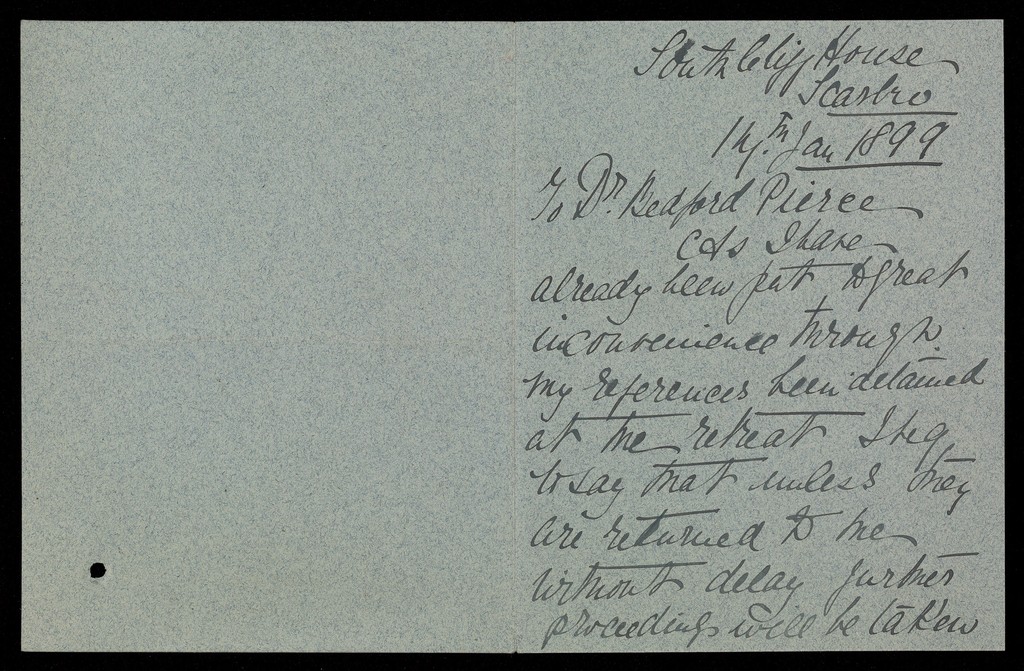 South Cliff House
Scarbro
14th. Jan 1899
To Dr. Bedford Pierce
As I have
already been put to great
inconvenience through
my references been detained
at the retreat I beg
to say that unless they
are returned to me
without delay further
proceedings will be taken